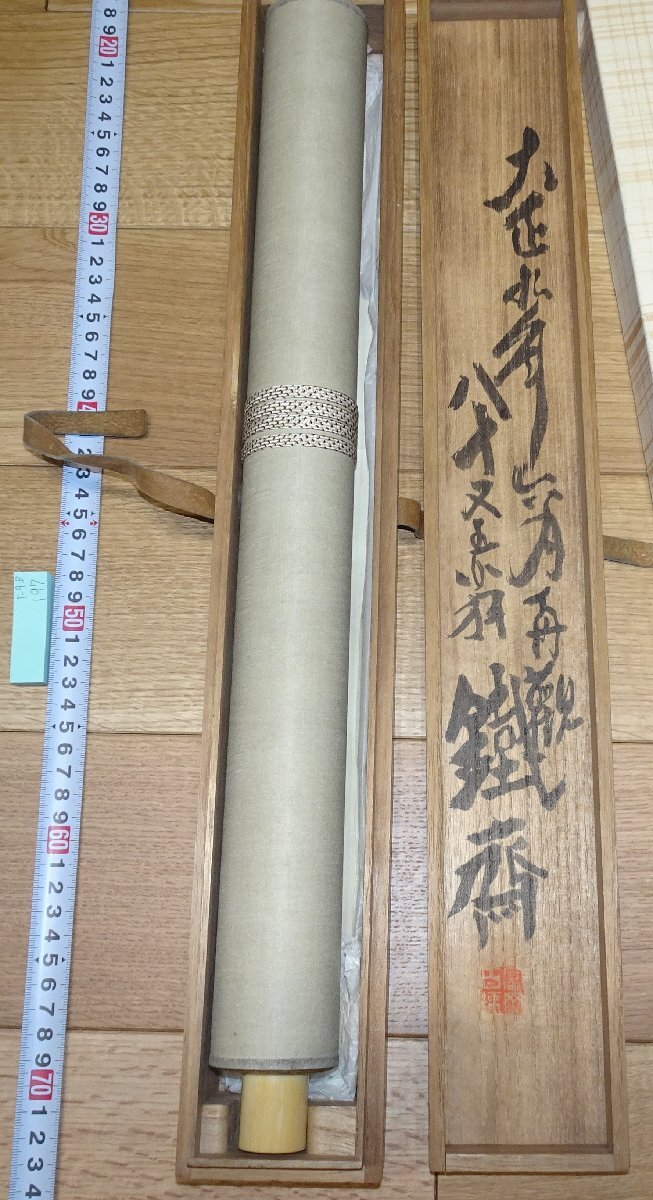 大正九年六月再觀
八十又五叟
鐵齋
8 9 20 1 2 3 4 5 6 7 8 9 30 1 2 3 4 5 6 7 8 9 4
3 4 5 6 7 8 9 50 1 2 3 4 5 6 7 8 9 60 1 2 3 4 5 6 7 8 9 70 1 2 3 4